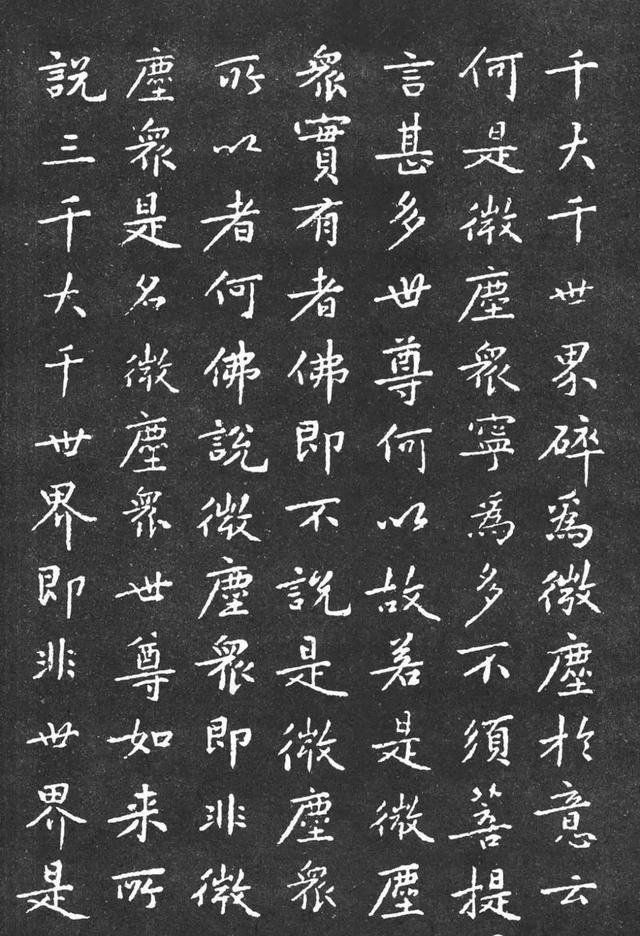 千大千世界碎爲微塵於意云
何是微塵衆寧爲多不須菩提
言甚多世尊何以故若是微塵
衆實有者佛即不說是微塵衆
所以者何佛說微塵衆即非微
塵衆是名微塵衆世尊如来所
說三千大千世界即非世界是